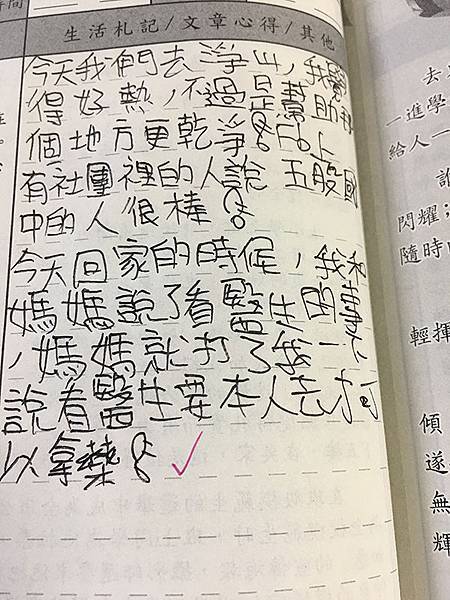 時間
生活札記/文章心得/其他
今天我們去淨山,我覺
得好熱,不過是幫助
個地方更乾淨。FB上
有社團裡的人說五股國
中的人很棒。
今天回家的時候,我和
媽媽說了看醫生的事
,媽媽就打了我一下
說看醫生要本人去才可
以拿藥。
去
一進學
給人一
閃耀;
隨時
輕揮
傾
遂
無
輝